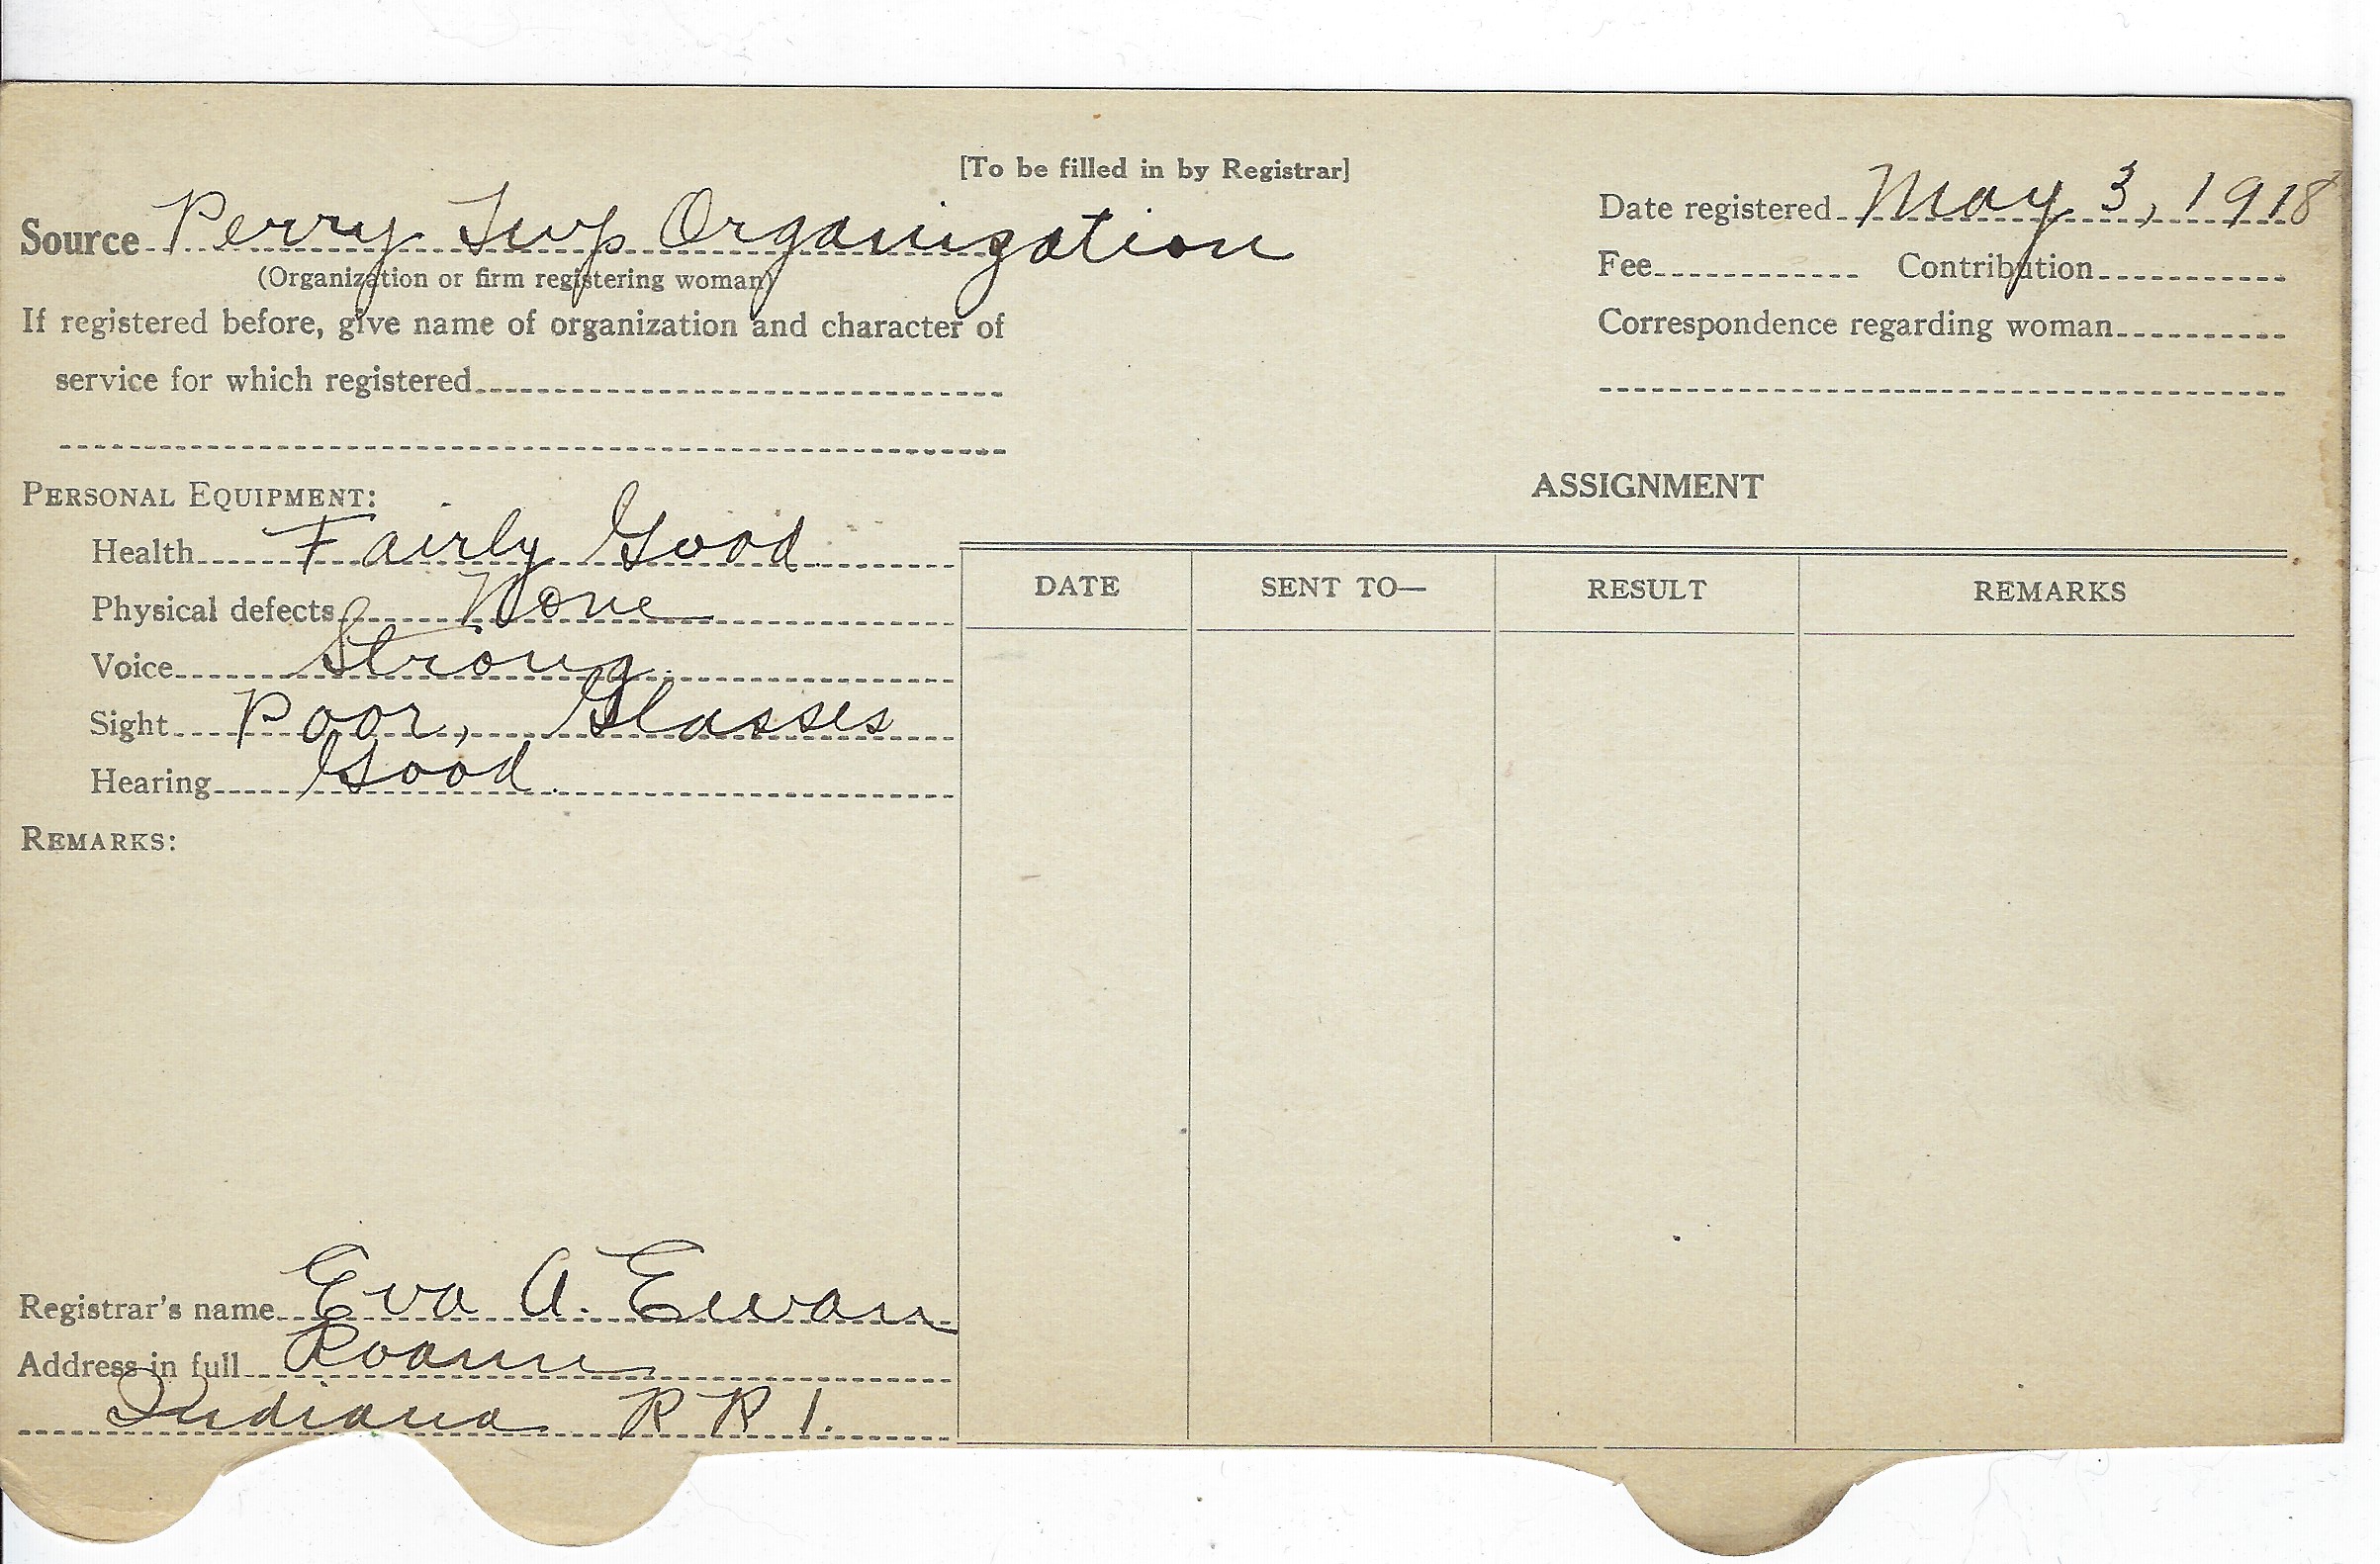 [To be filled in by Registrar]
Source Perry Twp Organization
(Organization or firm registering woman)
If registered before, give name of organization and character of
service for which registered
Date registered May 3, 1918
Fee Contribution
Correspondence regarding woman
PERSONAL EQUIPMENT:
Health Fairly Good
Physical defects None
Voice Strong
Sight Poor, Glasses
Hearing Good
REMARKS:
Registrar's name Eva A. Ewan
Address in full Roann
Indiana R R 1.
ASSIGNMENT
DATE SENT TO— RESULT REMARKS